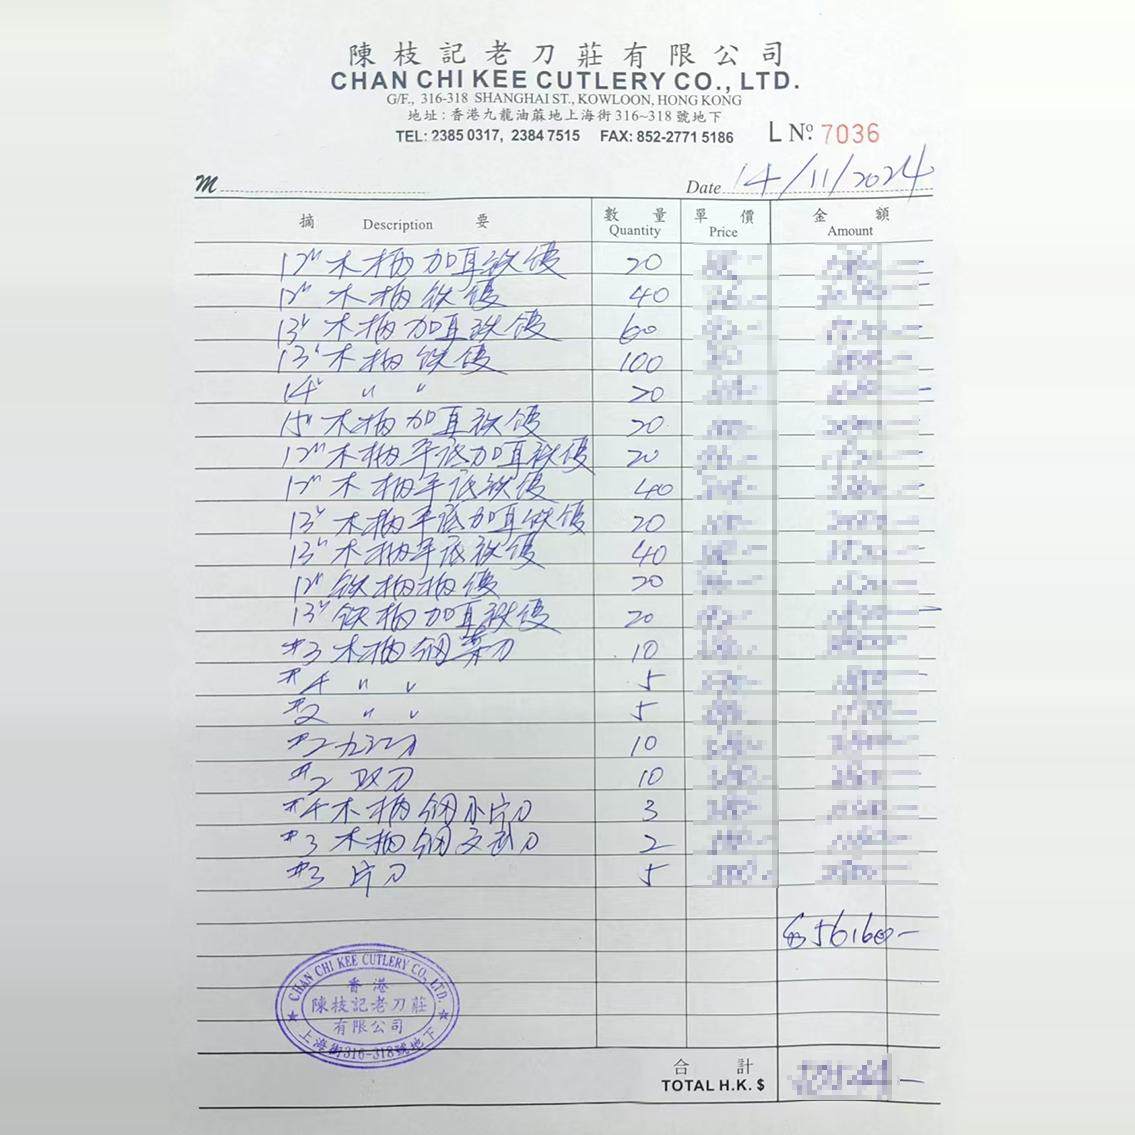 陳枝記老刀莊有限公司
CHAN CHI KEE CUTLERY CO., LTD.
G/F., 316-318 SHANGHAI ST., KOWLOON, HONG KONG
地址：香港九龍油蔴地上海街316~318號地下
TEL: 2385 0317, 2384 7515 FAX: 852-2771 5186 L No. 7036
M Date 14/11/2024
摘 Description 要 數量 Quantity 單價 Price 金額 Amount
12" 木柄加耳鉄 20
12" 木柄鉄 40
13" 木柄加耳鉄 60
13" 木柄鉄 100
14" " " 20
15" 木柄加耳鉄 20
12" 木柄平底加耳鉄 20
12" 木柄平底鉄 40
13" 木柄平底加耳鉄 20
13" 木柄平底鉄 40
12" 鉄柄 20
13" 鉄柄加耳鉄 20
#3 木柄 刀 10
#4 " " 5
#2 " " 5
#2 九江刀 10
#2 刀 10
#4 木柄 小片刀 3
#3 木柄 文武刀 2
#3 片刀 5
56160-
CHAN CHI KEE CUTLERY CO., LTD.
香港
陳枝記老刀莊
有限公司
上海街316-318號地下
合計
TOTAL H.K. $